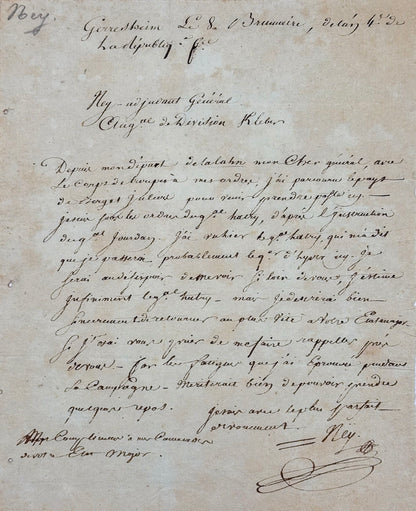 Ney
Gerresheim Le 8 Brumaire, de l'an 4e de
La République fse
Ney - adjudant Général
Au gal de Division Kleber
Depuis mon départ de la Lahn mon Cher général, avec
Le Corps de troupe à mes ordres, j'ai parcouru le pays
de Berg et Juliers pour venir prendre poste ici
je suis sous les ordres du gal hatry, d'après l'instruction
du gal Jourdan. J'ai vu hier le gal hatry, qui m'a dit
que je passerai probablement
Serai au desespoir de me voir si loin de vous, j'estime
Infiniment le gal hatry - mais je desirerai bien
Sincerement de retourner au plus vite a votre Etat major
Si j'osai vous prier de me faire rappeller près
de vous - Car les fatigues que j'ai éprouvé pendant
La Campagne - Meriterait bien de pouvoir prendre
quelque repos.
Je suis avec le plus parfait
devouement
Ney
Mes Compliments à mes Camarades
de votre Etat Major